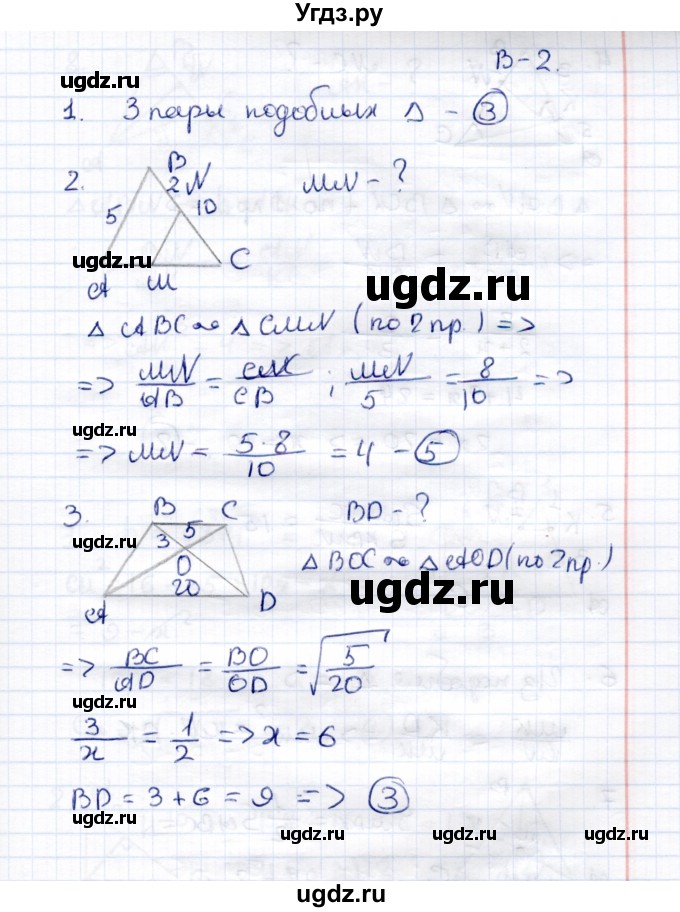 Угдз.ру
В-2.
ugdz.ru
1. 3 пары подобных Δ - ③
2.
B
2 N
MN - ?
5
10
ugdz.ru
C
A
M
ugdz.ru
Δ ABC ∾ Δ CMN (по 2 пр.) =>
=> MN/AB = CN/CB ; MN/5 = 8/10 =>
ugdz.ru
=> MN = 5·8/10 = 4 - ⑤
3.
B
C
BD - ?
ugdz.ru
3
5
O
20
Δ BOC ∾ Δ AOD (по 2 пр.)
A
D
ugdz.ru
=> BC/AD = BO/OD = √5/20
ugdz.ru
3/x = 1/2 => x = 6
BD = 3 + 6 = 9 => ③
ugdz.ru
ugdz.ru
ugdz.ru
ugdz.ru